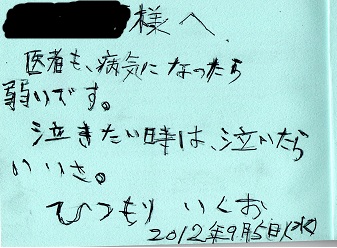 様へ
医者も、病気になったら
弱いです。
泣きたい時は、泣いたら
いいさ。
ひつもり いくお
2012年9月5日(水)